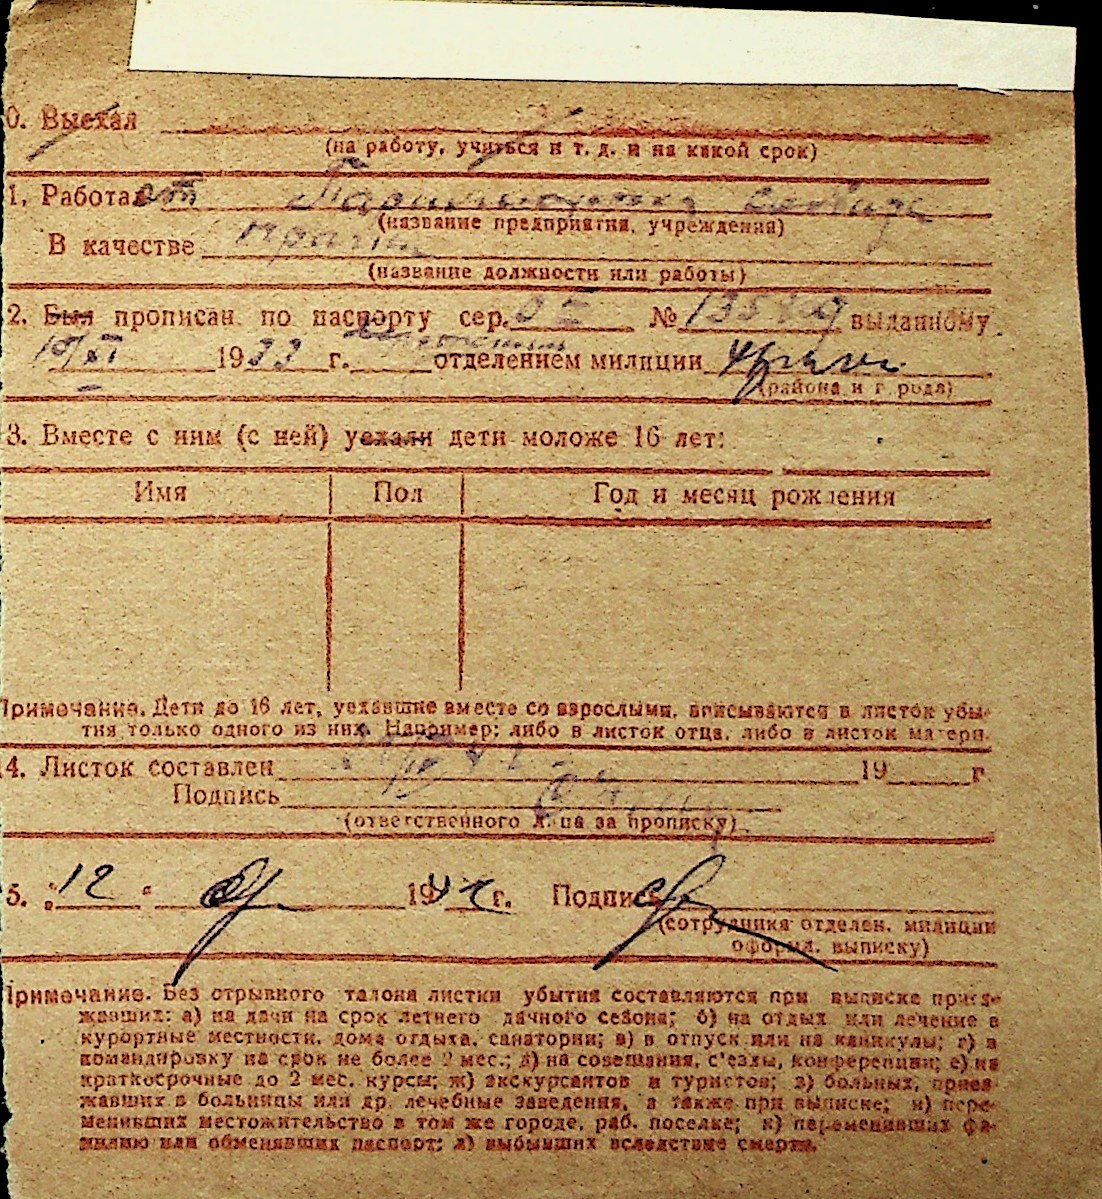 0. Выехал
(на работу, учиться и т. д. и на какой срок)
1. Работает
(название предприятия, учреждения)
В качестве
(название должности или работы)
2. Был прописан по паспорту сер. № 135809 выданному
10/XI 1933 г. отделением милиции
(района и города)
3. Вместе с ним (с ней) уехали дети моложе 16 лет:
Имя Пол Год и месяц рождения
Примечание. Дети до 16 лет, уехавшие вместе со взрослыми, вписываются в листок убы-
тия только одного из них. Например: либо в листок отца, либо в листок матери.
4. Листок составлен 19 г.
Подпись
(ответственного лица за прописку)
5. „12" 194 г. Подпись
(сотрудника отделен. милиции
оформл. выписку)
Примечание. Без отрывного талона листки убытия составляются при выписке приез-
жавших: а) на дачи на срок летнего дачного сезона; б) на отдых или лечение в
курортные местности, дома отдыха, санатории; в) в отпуск или на каникулы; г) в
командировку на срок не более 2 мес.; д) на совещания, с'езды, конференции; е) на
краткосрочные до 2 мес. курсы; ж) экскурсантов и туристов; з) больных, приез-
жавших в больницы или др. лечебные заведения, а также при выписке; и) пере-
менивших местожительство в том же городе, раб. поселке; к) переменивших фа-
милию или обменявших паспорт; л) выбывших вследствие смерти.